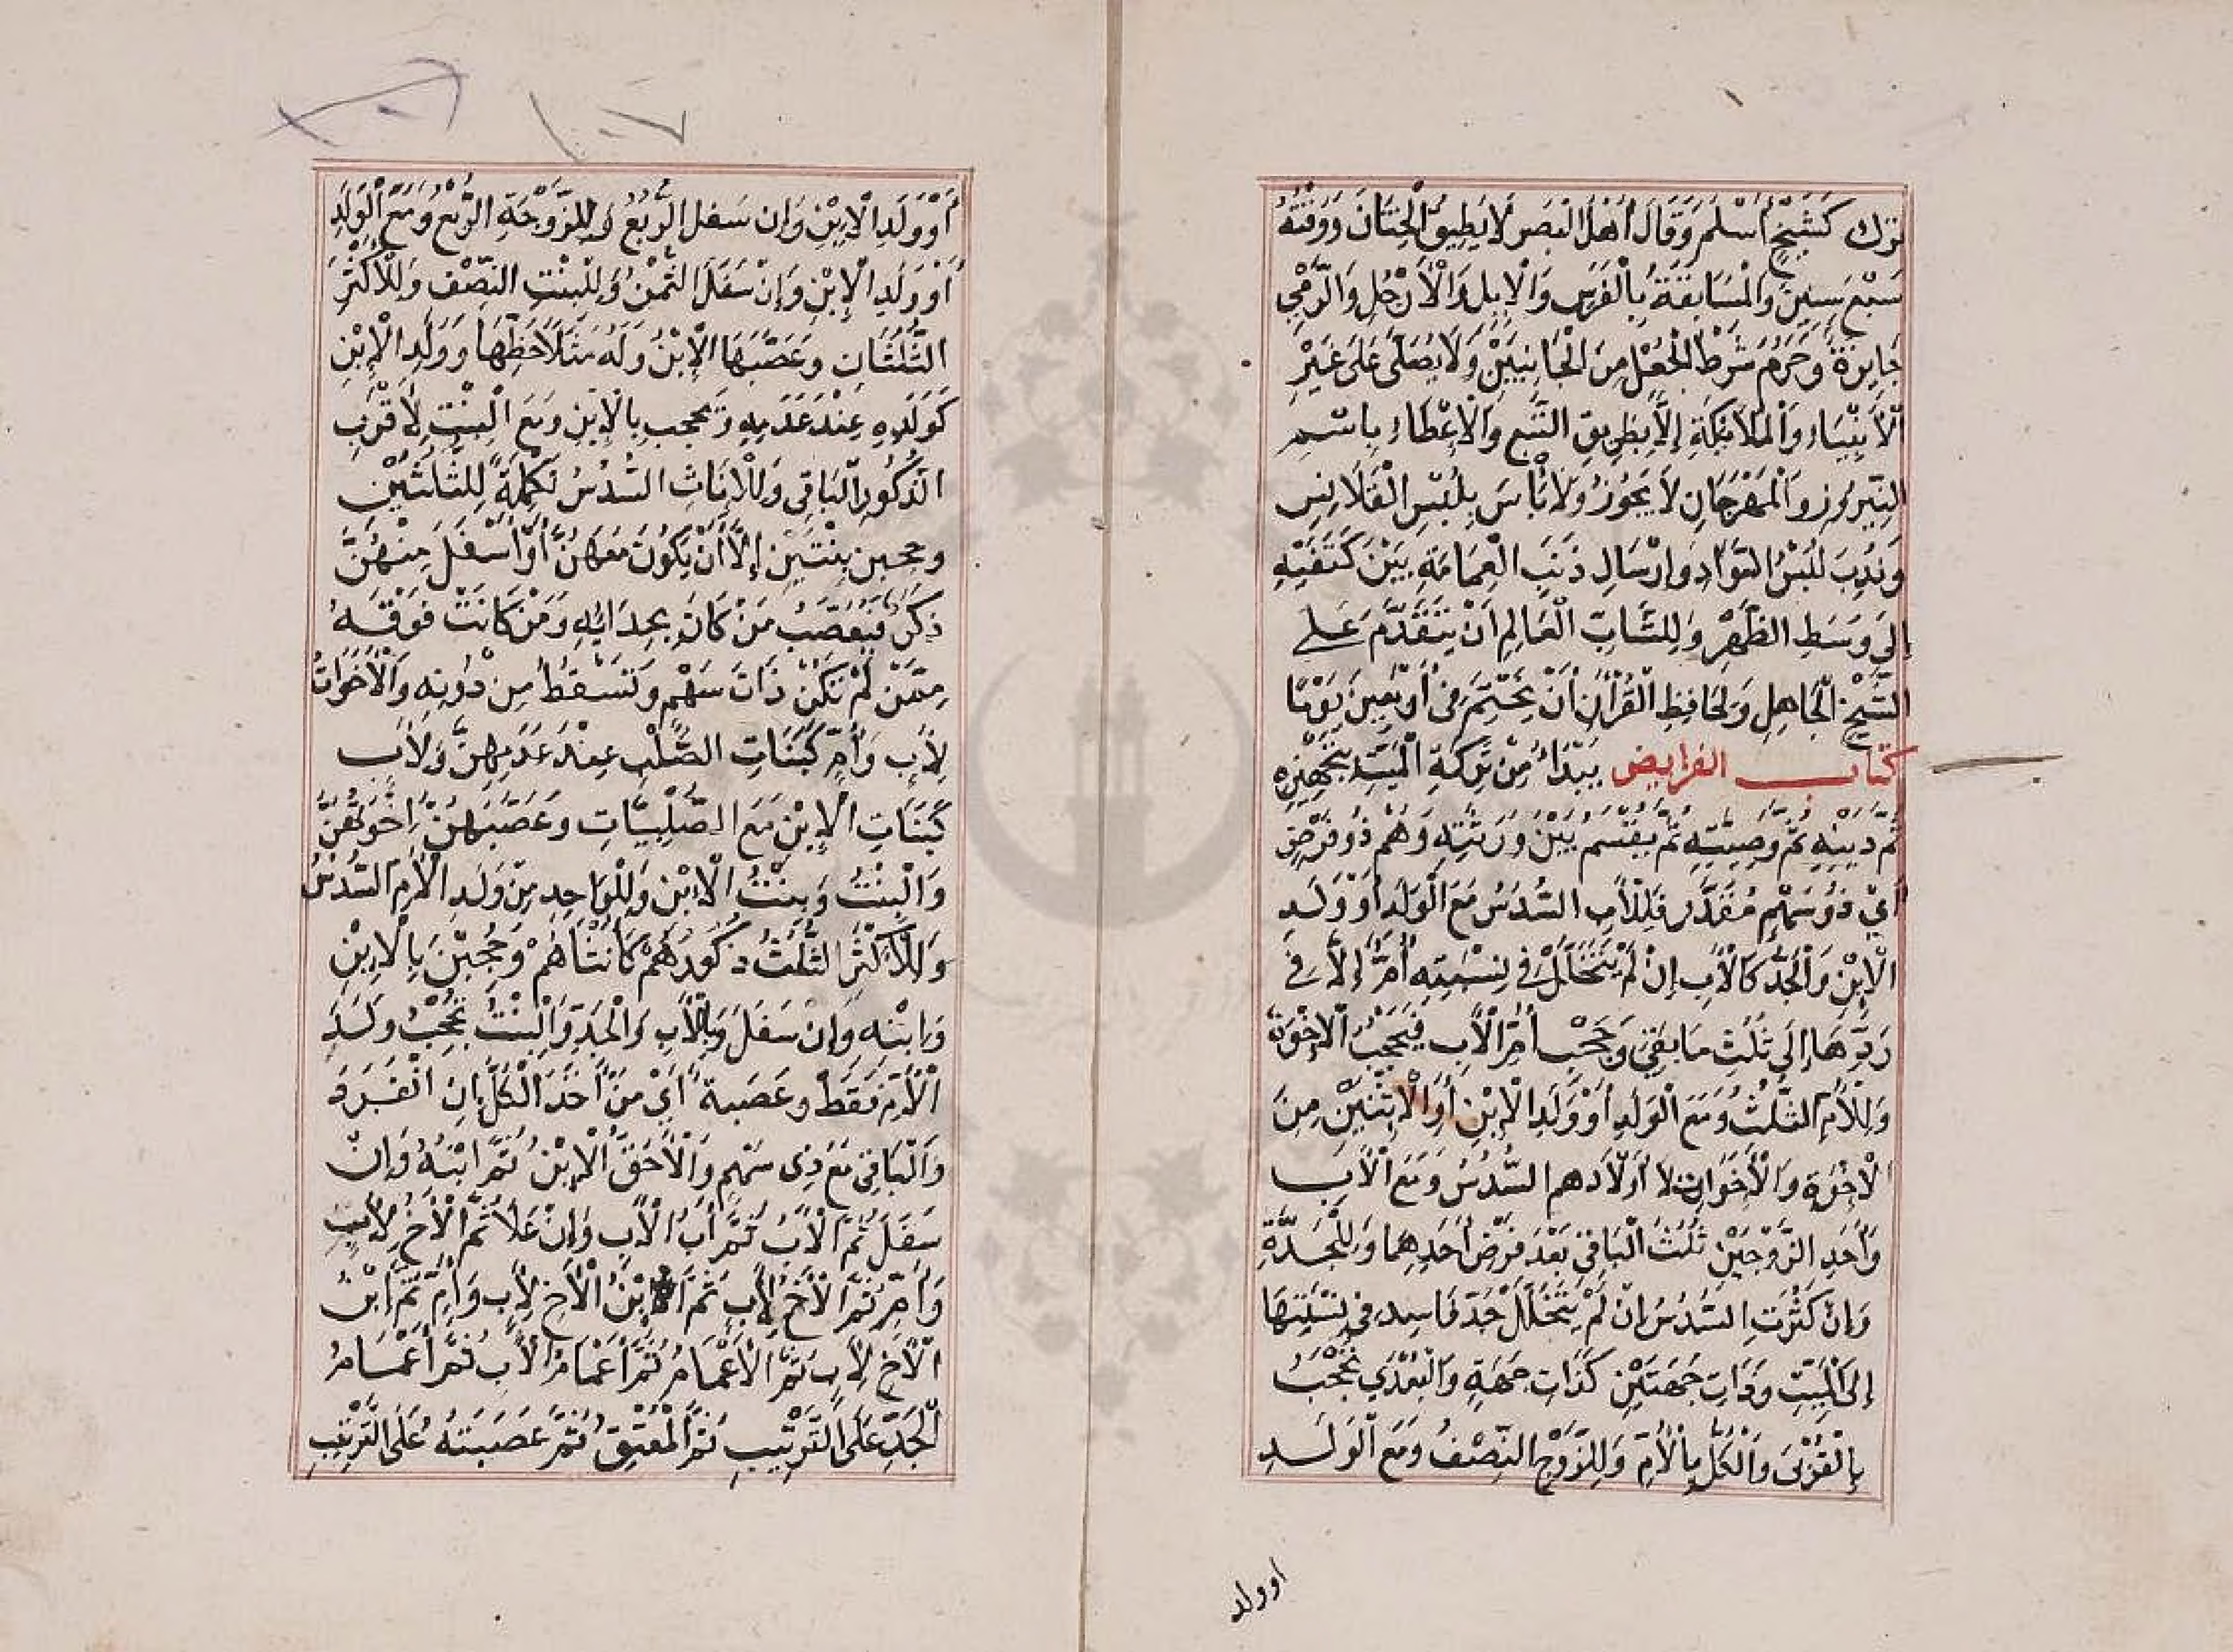 ترك كَشَيْخٍ أَسْلَمَ وَقَالَ أَهْلُ الْبَصَرِ لَا يُطِيقُ الْخِتَانَ وَوَقْتُهُ
سَبْعَ سِنِينَ وَالْمُسَابَقَةُ بِالْفَرَسِ وَالْإِبِلِ وَالْأَرْجُلِ وَالرَّمْيِ
جَايِزَةٌ وَحَرُمَ شَرْطُ الْجُعْلِ مِنَ الْجَانِبَيْنِ وَلَا يُصَلَّى عَلَى غَيْرِ
الْأَنْبِيَاءِ وَالْمَلَائِكَةِ إِلَّا بِطَرِيقِ التَّبَعِ وَالْإِعْطَاءِ بِاسْمِ
النَّيْرُوزِ وَالْمَهْرَجَانِ لَا يَجُوزُ وَلَا بَأْسَ بِلُبْسِ الْقَلَانِسِ
وَنُدِبَ لُبْسُ السَّوَادِ وَإِرْسَالِ ذَنَبِ الْعِمَامَةِ بَيْنَ كَتِفَيْهِ
إِلَى وَسَطِ الظَّهْرِ وَلِلشَّابِّ الْعَالِمِ أَنْ يَتَقَدَّمَ عَلَى
الشَّيْخِ الْجَاهِلِ وَلِحَافِظِ الْقُرْآنِ أَنْ يَخْتِمَ فِي أَرْبَعِينَ يَوْمًا
كتاب الفرايض يُبْدَأُ مِنْ تَرِكَةِ الْمَيِّتِ بِتَجْهِيزِهِ
ثُمَّ دَيْنِهِ ثُمَّ وَصِيَّتِهِ ثُمَّ يُقْسَمُ بَيْنَ وَرَثَتِهِ وَهُمْ ذُو فَرْضٍ
أَيْ ذُو سَهْمٍ مُقَدَّرٍ فَلِلْأَبِ السُّدُسُ مَعَ الْوَلَدِ أَوْ وَلَدِ
الْإِبْنِ وَالْجَدُّ كَالْأَبِ إِنْ لَمْ يَتَخَلَّلْ فِي نِسْبَتِهِ أُمٌّ إِلَّا فِي
رَدِّهَا إِلَى ثُلُثِ مَا بَقِيَ وَحَجْبِ أُمِّ الْأَبِ فَيَحْجُبُ الْإِخْوَةَ
وَلِلْأُمِّ الثُّلُثُ وَمَعَ الْوَلَدِ أَوْ وَلَدِ الْإِبْنِ أَوِ الْإِثْنَيْنِ مِنَ
الْإِخْوَةِ وَالْأَخَوَاتِ لَا أَوْلَادِهِمِ السُّدُسُ وَمَعَ الْأَبِ
وَأَحَدِ الزَّوْجَيْنِ ثُلُثُ الْبَاقِي بَعْدَ فَرْضِ أَحَدِهِمَا وَلِلْجَدَّةِ
وَإِنْ كَثُرَتِ السُّدُسُ إِنْ لَمْ يَتَخَلَّلْ جَدٌّ فَاسِدٌ فِي نِسْبَتِهَا
إِلَى الْمَيِّتِ وَذَاتِ جِهَتَيْنِ كَذَاتِ جِهَةٍ وَالْبُعْدَى تُحْجَبُ
بِالْقُرْبَى وَالْكُلُّ بِالْأُمِّ وَلِلزَّوْجِ النِّصْفُ وَمَعَ الْوَلَدِ
اوولد
أَوْ وَلَدِ الْإِبْنِ وَإِنْ سَفَلَ الرُّبُعُ وَلِلزَّوْجَةِ الرُّبُعُ وَمَعَ الْوَلَدِ
أَوْ وَلَدِ الْإِبْنِ وَإِنْ سَفَلَ الثُّمْنُ وَلِلْبِنْتِ النِّصْفُ وَلِلْأَكْثَرِ
الثُّلُثَانِ وَعَصَّبَهَا الْإِبْنُ وَلَهُ مِثْلَا حَظِّهَا وَوَلَدُ الْإِبْنِ
كَوَلَدِهِ عِنْدَ عَدَمِهِ وَتُحْجَبُ بِالْإِبْنِ وَمَعَ الْبِنْتِ لِأَقْرَبِ
الذُّكُورِ الْبَاقِي وَلِلْإِنَاثِ السُّدُسُ تَكْمِلَةً لِلثُّلُثَيْنِ
وحجبن بِبِنْتَيْنِ إِلَّا أَنْ يَكُونَ مَعَهُنَّ أَوْ أَسْفَلَ مِنْهُنَّ
ذَكَرٌ فَيُعَصِّبُ مَنْ كَانَ بِحِذَائِهِ وَمَنْ كَانَتْ فَوْقَهُ
مِمَّنْ لَمْ تَكُنْ ذَاتَ سَهْمٍ وَتَسْقُطُ مِنْ دُونِهِ وَالْأَخَوَاتُ
لِأَبٍ وَأُمٍّ كَبَنَاتِ الصُّلْبِ عِنْدَ عَدَمِهِنَّ وَلِأَبٍ
كَبَنَاتِ الْإِبْنِ مَعَ الصُّلْبِيَّاتِ وَعَصَّبَهُنَّ إِخْوَتُهُنَّ
وَالْبِنْتُ وَبِنْتُ الْإِبْنِ وَلِلْوَاحِدِ مِنْ وَلَدِ الْأُمِّ السُّدُسُ
وَلِلْأَكْثَرِ الثُّلُثُ ذُكُورُهُمْ كَأُنْثَاهُمْ وَحُجِبْنَ بِالْإِبْنِ
وَابْنِهِ وَإِنْ سَفَلَ وَبِالْأَبِ وَالْجَدِّ وَالْبِنْتُ تَحْجُبُ وَلَدَ
الْأُمِّ فَقَطْ وَعَصَبَةٌ أَيْ مَنْ أَخَذَ الْكُلَّ إِنِ انْفَرَدَ
وَالْبَاقِي مَعَ ذِي سَهْمٍ وَالْأَحَقُّ الْإِبْنُ ثُمَّ ابْنُهُ وَإِنْ
سَفَلَ ثُمَّ الْأَبُ ثُمَّ أَبُ الْأَبِ وَإِنْ عَلَا ثُمَّ الْأَخُ لِأَبٍ
وَأُمٍّ ثُمَّ الْأَخُ لِأَبٍ ثُمَّ ابْنُ الْأَخِ لِأَبٍ وَأُمٍّ ثُمَّ ابْنُ
الْأَخِ لِأَبٍ ثُمَّ الْأَعْمَامُ ثُمَّ أَعْمَامُ الْأَبِ ثُمَّ أَعْمَامُ
الْجَدِّ عَلَى التَّرْتِيبِ ثُمَّ الْمُعْتِقُ ثُمَّ عَصَبَتُهُ عَلَى التَّرْتِيبِ